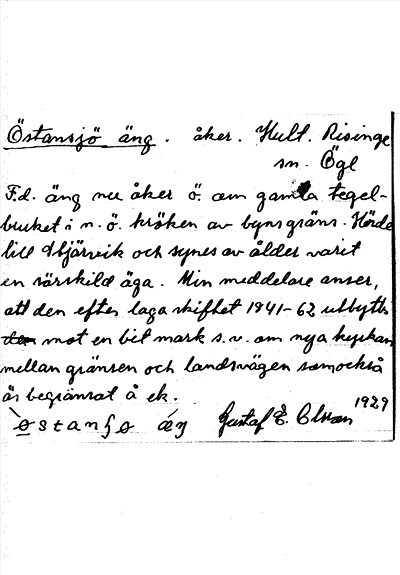 Östansjö äng. åker. Hult. Risinge
sn. Ögl
F.d. äng nu åker ö. om gamla tegel-
bruket i n.ö. kröken av byns gräns. Hörde
till Stjärvik och synes av ålder varit
en särskild äga. Min meddelare anser,
att den efter laga skiftet 1841-62 utbytts
mot en bit mark s.v. om nya kyrkan
mellan gränsen och landsvägen som också
är begränsat å ek.
1929
Gustaf E. Olsson